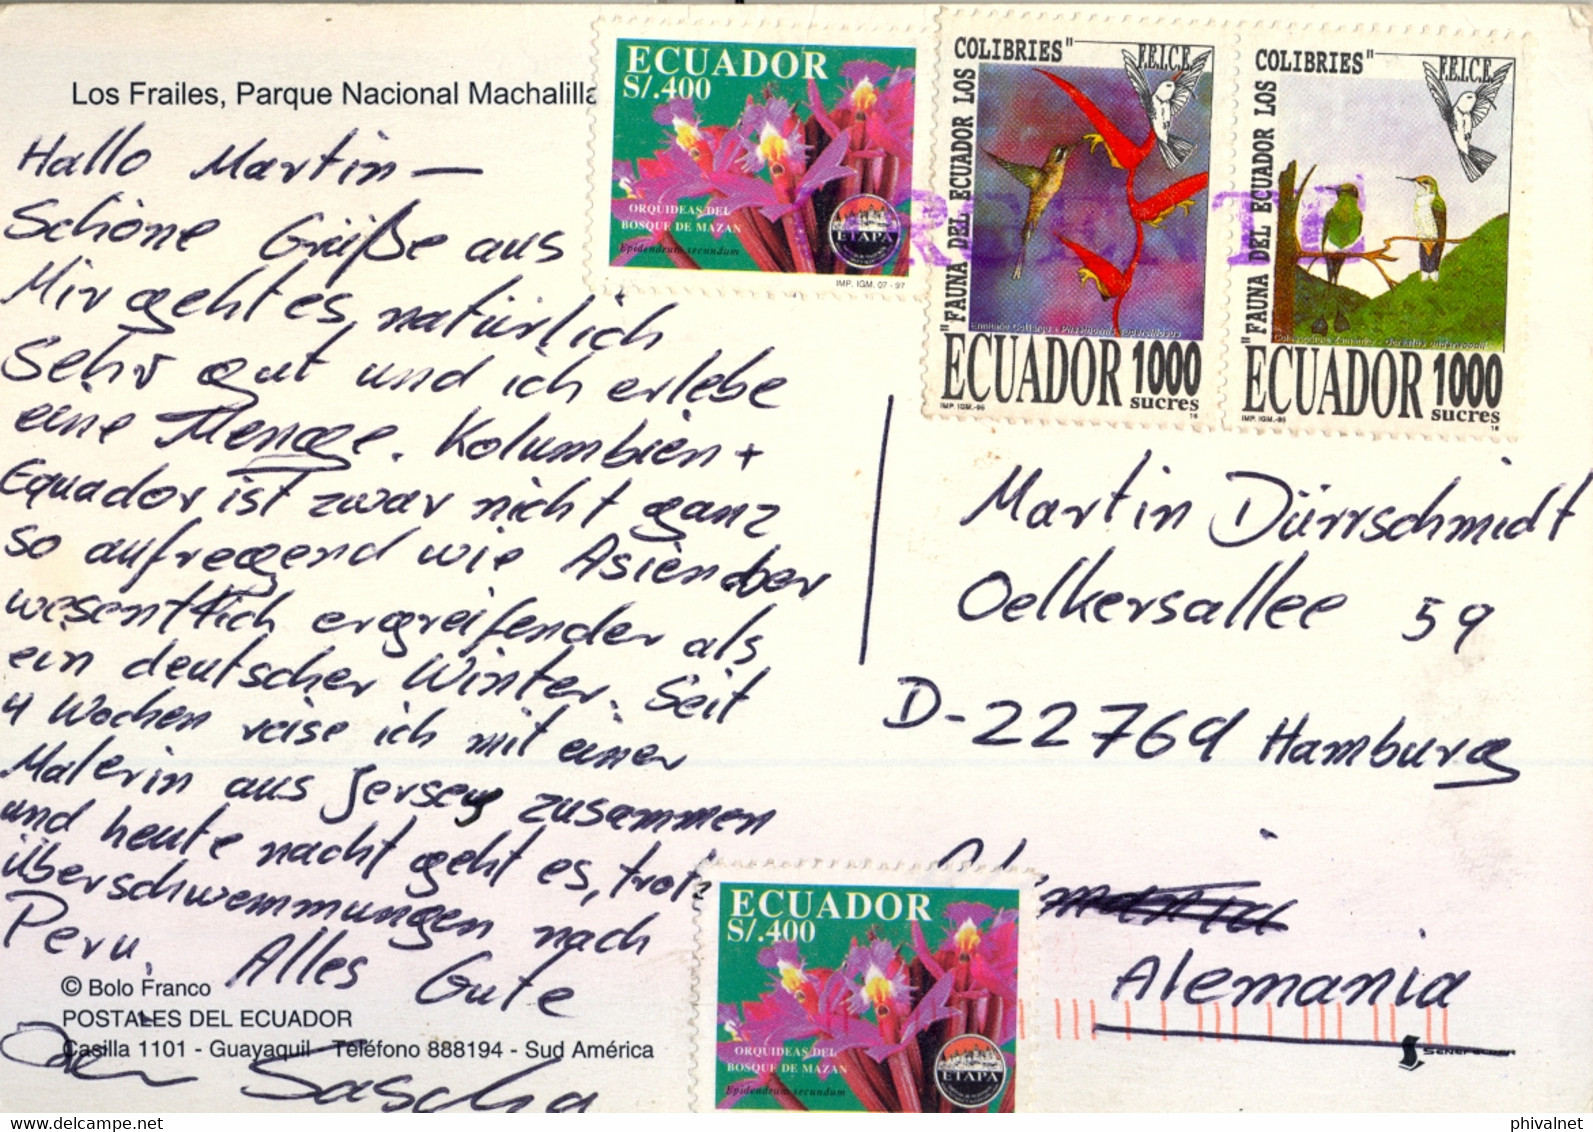 Los Frailes, Parque Nacional Machalilla
Hallo Martin —
Schöne Grüße aus
Mir geht es, natürlich
Sehr gut und ich erlebe
eine Menge. Kolumbien +
Equador ist zwar nicht ganz
so aufregend wie Asien aber
wesentlich ergreifender als
ein deutscher Winter. Seit
4 Wochen reise ich mit einer
Malerin aus Jersey zusammen
und heute nacht geht es, trotz
überschwemmungen nach
Peru. Alles Gute
Sascha
© Bolo Franco
POSTALES DEL ECUADOR
Casilla 1101 - Guayaquil - Teléfono 888194 - Sud América
ECUADOR
S/.400
ORQUIDEAS DEL
BOSQUE DE MAZAN
Epidendrum secundum
ETAPA
IMP. IGM. 07 - 97
"FAUNA DEL ECUADOR LOS
COLIBRIES"
F.E.I.C.E.
ECUADOR 1000
sucres
IMP. IGM.-96
16
"FAUNA DEL ECUADOR LOS
COLIBRIES"
F.E.I.C.E.
ECUADOR 1000
sucres
IMP. IGM.-96
16
Martin Dürrschmidt
Oelkersallee 59
D-22769 Hamburg
Alemania
SENEFELDER
ECUADOR
S/.400
ORQUIDEAS DEL
BOSQUE DE MAZAN
Epidendrum secundum
ETAPA
phivalnet